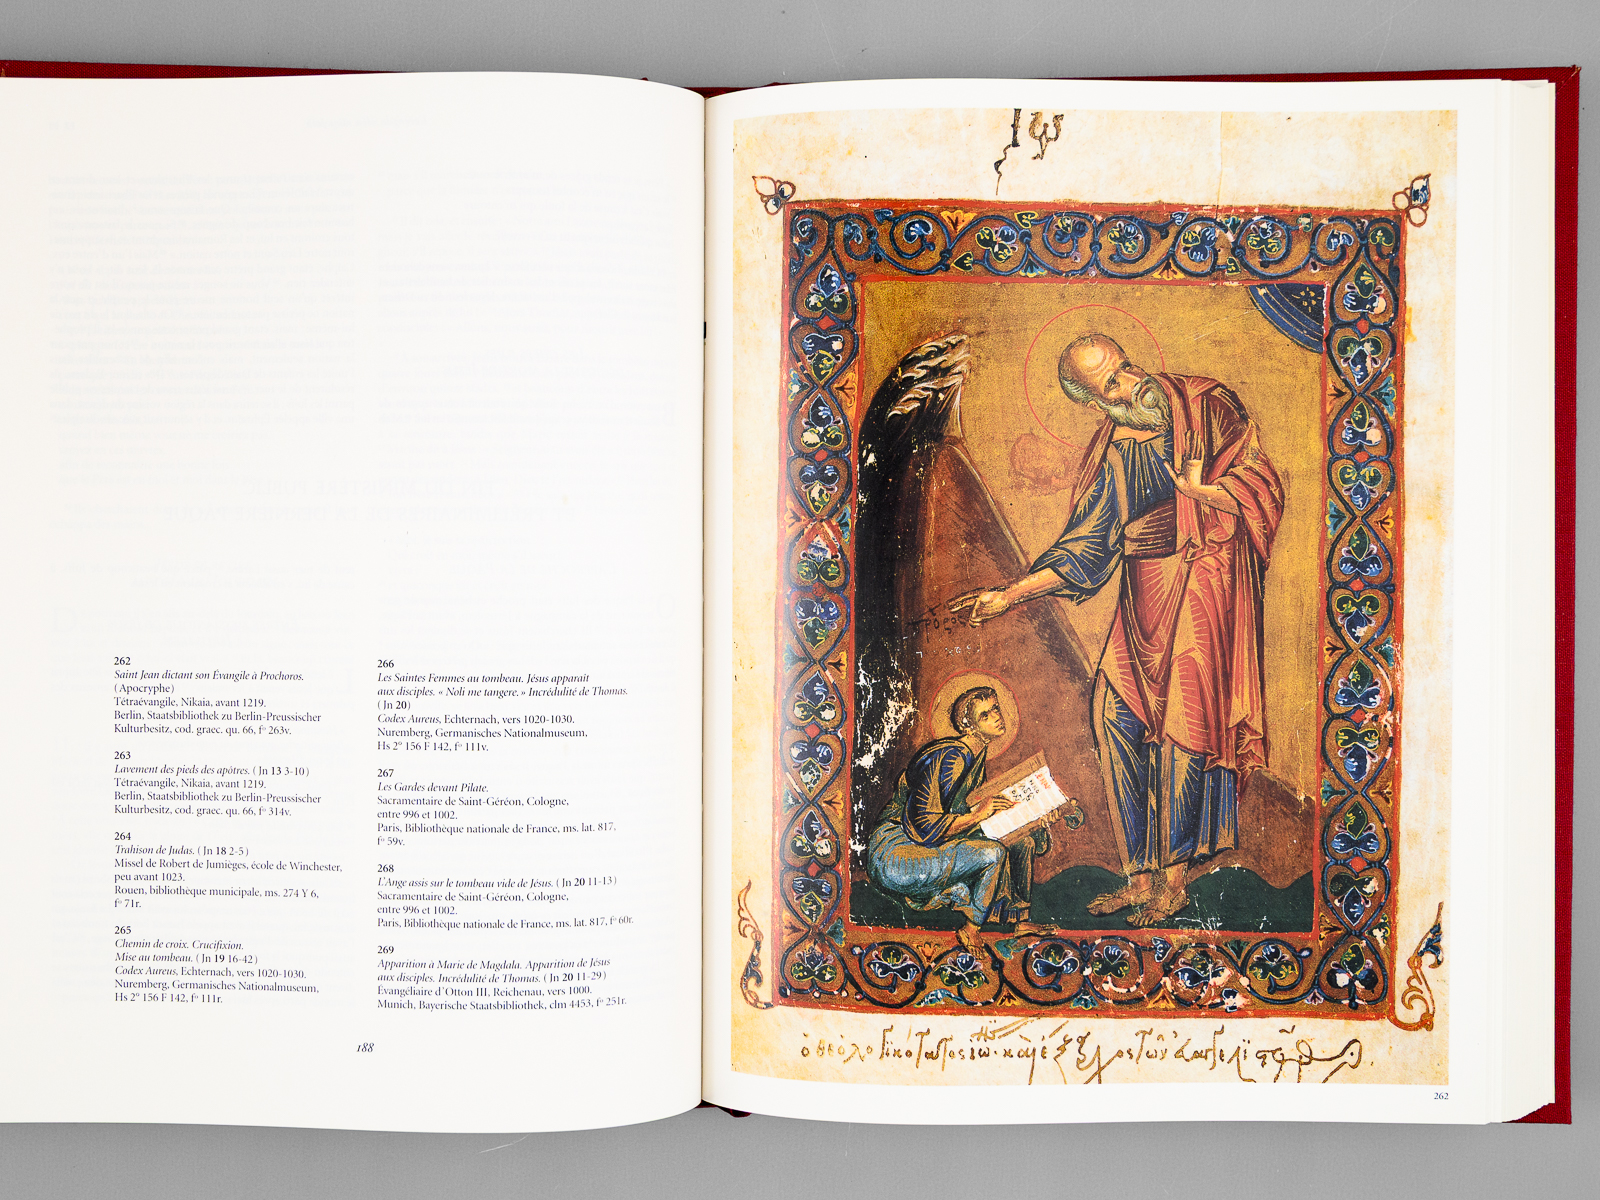 262
Saint Jean dictant son Évangile à Prochoros.
(Apocryphe)
Tétraévangile, Nikaia, avant 1219.
Berlin, Staatsbibliothek zu Berlin-Preussischer
Kulturbesitz, cod. graec. qu. 66, fº 263v.
263
Lavement des pieds des apôtres. (Jn 13 3-10)
Tétraévangile, Nikaia, avant 1219.
Berlin, Staatsbibliothek zu Berlin-Preussischer
Kulturbesitz, cod. graec. qu. 66, fº 314v.
264
Trahison de Judas. (Jn 18 2-5)
Missel de Robert de Jumièges, école de Winchester,
peu avant 1023.
Rouen, bibliothèque municipale, ms. 274 Y 6,
fº 71r.
265
Chemin de croix. Crucifixion.
Mise au tombeau. (Jn 19 16-42)
Codex Aureus, Echternach, vers 1020-1030.
Nuremberg, Germanisches Nationalmuseum,
Hs 2º 156 F 142, fº 111r.
266
Les Saintes Femmes au tombeau. Jésus apparait
aux disciples. « Noli me tangere. » Incrédulité de Thomas.
(Jn 20)
Codex Aureus, Echternach, vers 1020-1030.
Nuremberg, Germanisches Nationalmuseum,
Hs 2º 156 F 142, fº 111v.
267
Les Gardes devant Pilate.
Sacramentaire de Saint-Géréon, Cologne,
entre 996 et 1002.
Paris, Bibliothèque nationale de France, ms. lat. 817,
fº 59v.
268
L'Ange assis sur le tombeau vide de Jésus. (Jn 20 11-13)
Sacramentaire de Saint-Géréon, Cologne,
entre 996 et 1002.
Paris, Bibliothèque nationale de France, ms. lat. 817, fº 60r.
269
Apparition à Marie de Magdala. Apparition de Jésus
aux disciples. Incrédulité de Thomas. (Jn 20 11-29)
Évangéliaire d'Otton III, Reichenau, vers 1000.
Munich, Bayerische Staatsbibliothek, clm 4453, fº 251r.
188
Ἰω
262